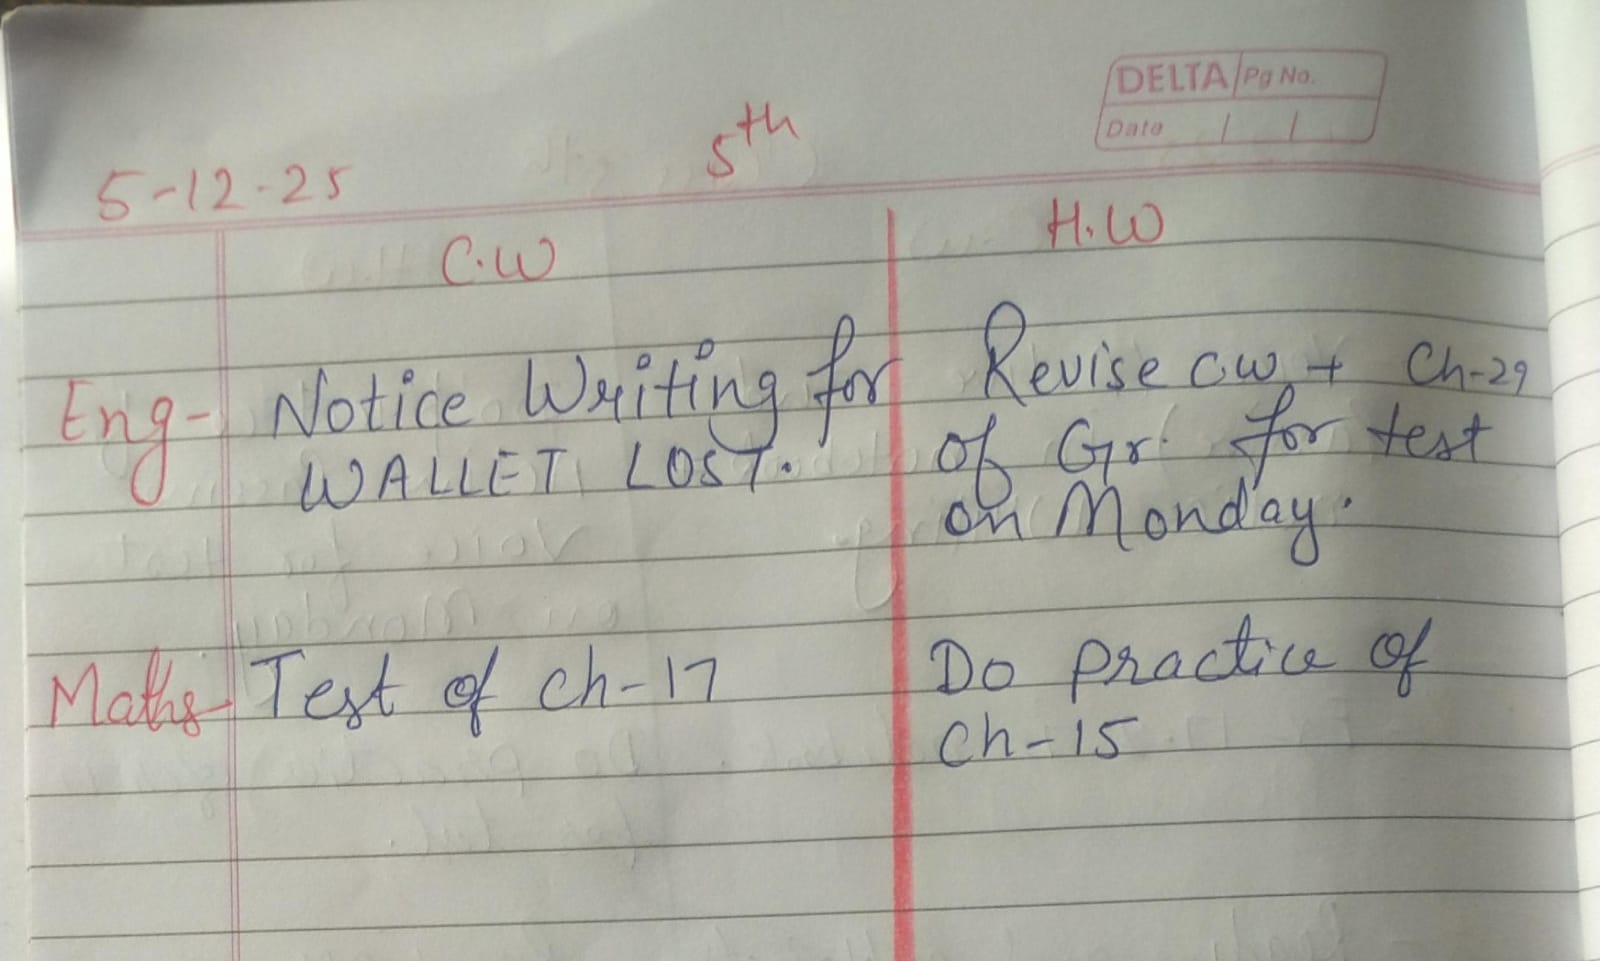 DELTA Pg No.
Date / /
5-12-25 5th
C.W H.W
Eng- Notice Writing for Revise cw + Ch-29
WALLET LOST. of Gr. for test
on Monday.
Maths- Test of ch-17 Do practice of
Ch-15